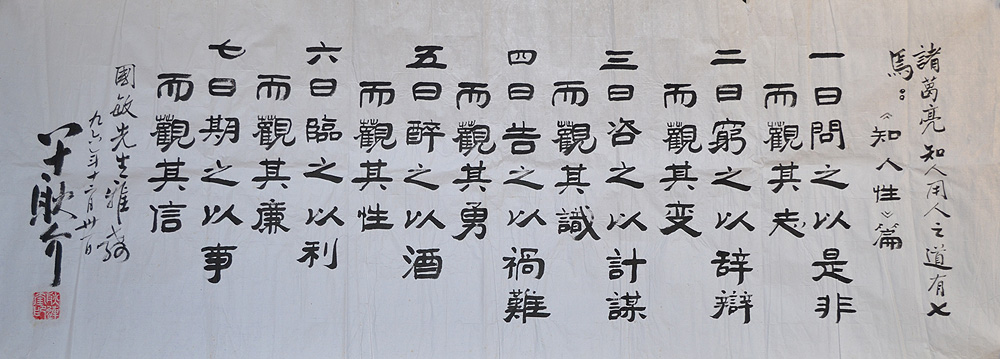 諸葛亮知人用人之道有七
焉：《知人性》篇
一曰問之以是非
而觀其志
二曰窮之以辞辯
而觀其变
三曰咨之以計謀
而觀其識
四曰告之以禍難
而觀其勇
五曰醉之以酒
而觀其性
六曰臨之以利
而觀其廉
七曰期之以事
而觀其信
國敏先生雅教